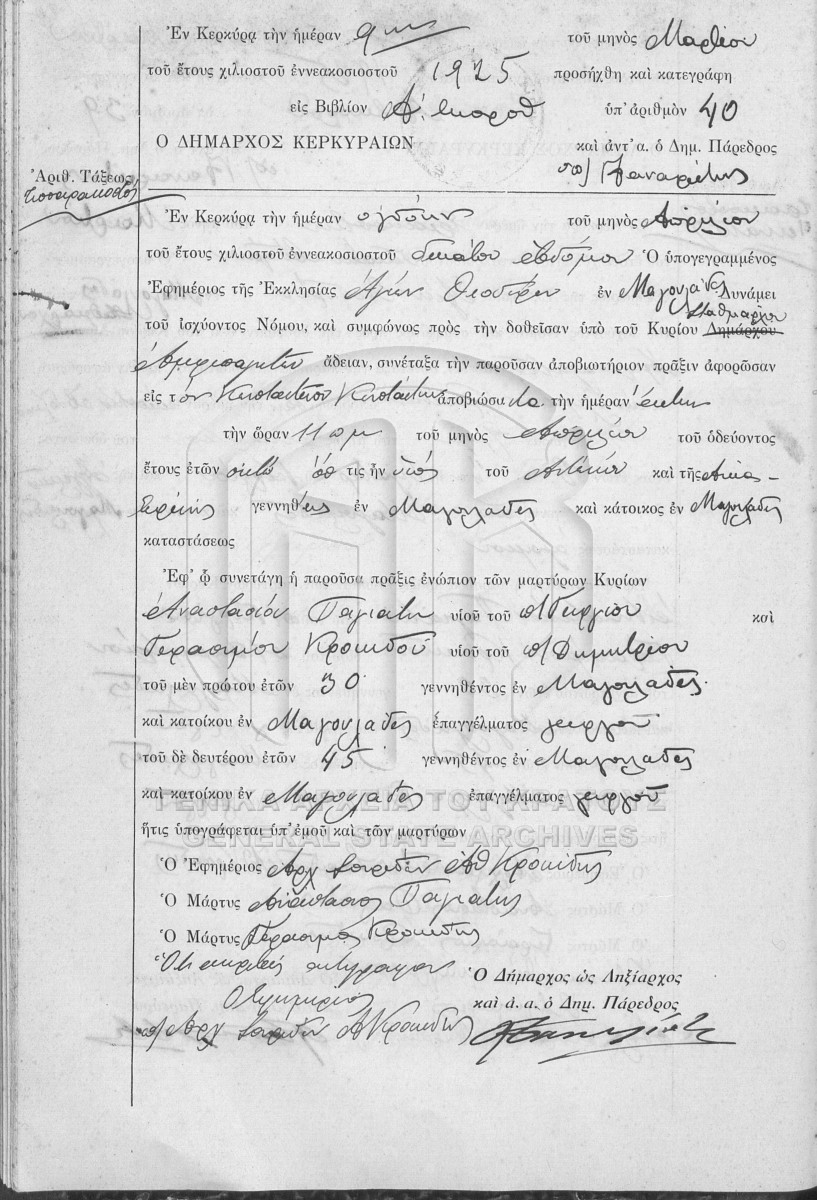 Ἐν Κερκύρᾳ τὴν ἡμέραν 9ην τοῦ μηνὸς Μαρτίου
τοῦ ἔτους χιλιοστοῦ ἐννεακοσιοστοῦ 1925 προσήχθη καὶ κατεγράφη
εἰς Βιβλίον Α'. ὑπ' ἀριθμὸν 40
Ο ΔΗΜΑΡΧΟΣ ΚΕΡΚΥΡΑΙΩΝ καὶ ἀντ' α. ὁ Δημ. Πάρεδρος
Ἀριθ. Τάξεως
Τεσσαρακοστὸς
Ἐν Κερκύρᾳ τὴν ἡμέραν ὀγδόην τοῦ μηνὸς Ἀπριλίου
τοῦ ἔτους χιλιοστοῦ ἐννεακοσιοστοῦ δεκάτου ἑβδόμου Ὁ ὑπογεγραμμένος
Ἐφημέριος τῆς Ἐκκλησίας Ἁγίων Θεοδώρων ἐν Μαγουλάδες Δυνάμει
τοῦ ἰσχύοντος Νόμου, καὶ συμφώνως πρὸς τὴν δοθεῖσαν ὑπὸ τοῦ Κυρίου Δημάρχου Σταθμάρχου
ἄδειαν, συνέταξα τὴν παροῦσαν ἀποβιωτήριον πρᾶξιν ἀφορῶσαν
εἰς τὸν Κωσταντῖνον ἀποβιώσαντα τὴν ἡμέραν ἕκτην
τὴν ὥραν 11 πμ τοῦ μηνὸς Ἀπριλίου τοῦ ὁδεύοντος
ἔτους ἐτῶν ὀκτὼ ὅστις ἦν υἱὸς τοῦ καὶ τῆς Αἰκα-
τερίνης γεννηθεὶς ἐν Μαγουλάδες καὶ κάτοικος ἐν Μαγουλάδες
καταστάσεως
Ἐφ' ᾧ συνετάγη ἡ παροῦσα πρᾶξις ἐνώπιον τῶν μαρτύρων Κυρίων
Ἀναστασίου Παγιάτη υἱοῦ τοῦ π/ Γεωργίου καὶ
Γερασίμου Κροκίδου υἱοῦ τοῦ π/ Δημητρίου
τοῦ μὲν πρώτου ἐτῶν 30 γεννηθέντος ἐν Μαγουλάδες
καὶ κατοίκου ἐν Μαγουλάδες ἐπαγγέλματος γεωργοῦ
τοῦ δὲ δευτέρου ἐτῶν 45 γεννηθέντος ἐν Μαγουλάδες
καὶ κατοίκου ἐν Μαγουλάδες ἐπαγγέλματος γεωργοῦ
ΓΕΝΙΚΑ ΑΡΧΕΙΑ ΤΟΥ ΚΡΑΤΟΥΣ
ἥτις ὑπογράφεται ὑπ' ἐμοῦ καὶ τῶν μαρτύρων
GENERAL STATE ARCHIVES
Ὁ Ἐφημέριος Ἀρχ Σπυρίδων Ἀθ Κροκίδης
Ὁ Μάρτυς Ἀναστάσιος Παγιάτης
Ὁ Μάρτυς Γεράσιμος Κροκίδης
Ὅτι ἀκριβὲς ἀντίγραφον
Ὁ Δήμαρχος ὡς Ληξίαρχος
Ὁ Ἐφημέριος
καὶ ἀ. ἀ. ὁ Δημ. Πάρεδρος
π/ Ἀρχ Σπυρίδων Α Κροκίδης